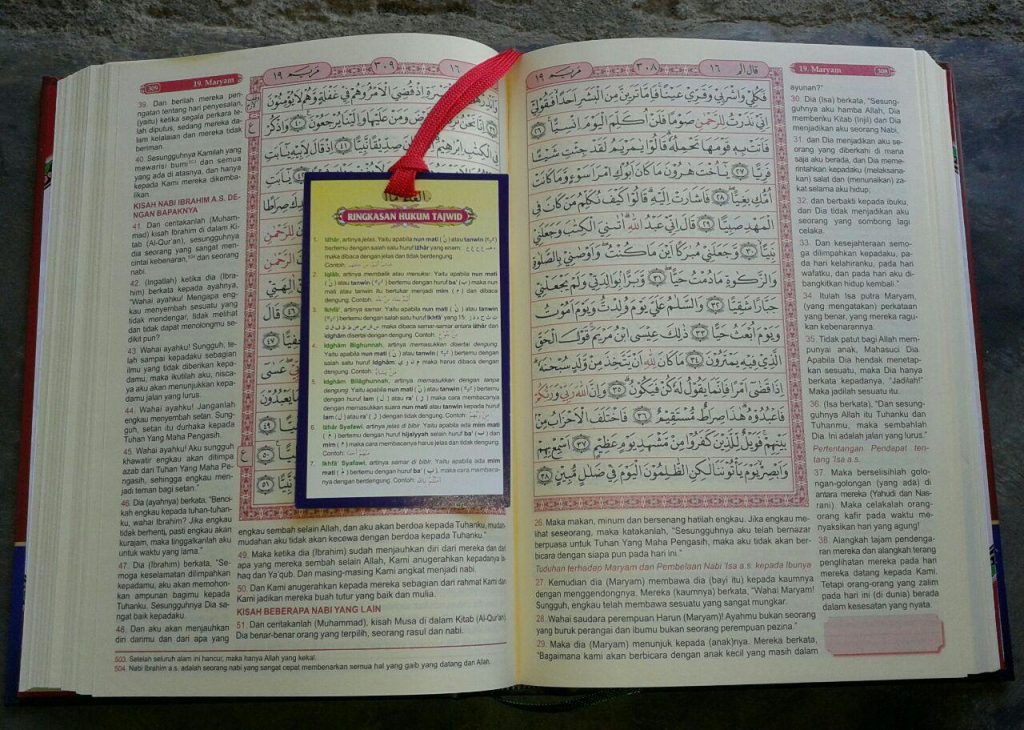 19. Maryam 308
قَالَ اَلَمْ ١٦
٣٠٨
مَرْيَم ١٩
فَكُلِيْ وَاشْرَبِيْ وَقَرِّيْ عَيْنًا فَاِمَّا تَرَيِنَّ مِنَ الْبَشَرِ اَحَدًا فَقُوْلِيْٓ
اِنِّيْ نَذَرْتُ لِلرَّحْمٰنِ صَوْمًا فَلَنْ اُكَلِّمَ الْيَوْمَ اِنْسِيًّا ۚ ٢٦
فَاَتَتْ بِهٖ قَوْمَهَا تَحْمِلُهٗ ۗ قَالُوْا يٰمَرْيَمُ لَقَدْ جِئْتِ شَيْـًٔا
فَرِيًّا ٢٧ يٰٓاُخْتَ هٰرُوْنَ مَا كَانَ اَبُوْكِ امْرَاَ سَوْءٍ وَّمَا كَانَتْ
اُمُّكِ بَغِيًّا ۖ ٢٨ فَاَشَارَتْ اِلَيْهِ ۗ قَالُوْا كَيْفَ نُكَلِّمُ مَنْ كَانَ فِى
الْمَهْدِ صَبِيًّا ٢٩ قَالَ اِنِّيْ عَبْدُ اللّٰهِ ۗ اٰتٰىنِيَ الْكِتٰبَ وَجَعَلَنِيْ
نَبِيًّا ۙ ٣٠ وَّجَعَلَنِيْ مُبٰرَكًا اَيْنَ مَا كُنْتُ ۖ وَاَوْصٰنِيْ بِالصَّلٰوةِ
وَالزَّكٰوةِ مَا دُمْتُ حَيًّا ۖ ٣١ وَّبَرًّا بِوَالِدَتِيْ وَلَمْ يَجْعَلْنِيْ
جَبَّارًا شَقِيًّا ٣٢ وَالسَّلٰمُ عَلَيَّ يَوْمَ وُلِدْتُّ وَيَوْمَ اَمُوْتُ
وَيَوْمَ اُبْعَثُ حَيًّا ٣٣ ذٰلِكَ عِيْسَى ابْنُ مَرْيَمَ ۚ قَوْلَ الْحَقِّ
الَّذِيْ فِيْهِ يَمْتَرُوْنَ ٣٤ مَا كَانَ لِلّٰهِ اَنْ يَّتَّخِذَ مِنْ وَّلَدٍ سُبْحٰنَهٗ ۗ
اِذَا قَضٰٓى اَمْرًا فَاِنَّمَا يَقُوْلُ لَهٗ كُنْ فَيَكُوْنُ ۗ ٣٥ وَاِنَّ اللّٰهَ رَبِّيْ وَرَبُّكُمْ
فَاعْبُدُوْهُ ۗ هٰذَا صِرَاطٌ مُّسْتَقِيْمٌ ٣٦ فَاخْتَلَفَ الْاَحْزَابُ مِنْۢ
بَيْنِهِمْ ۚ فَوَيْلٌ لِّلَّذِيْنَ كَفَرُوْا مِنْ مَّشْهَدِ يَوْمٍ عَظِيْمٍ ٣٧ اَسْمِعْ بِهِمْ
وَاَبْصِرْ يَوْمَ يَأْتُوْنَنَا لٰكِنِ الظّٰلِمُوْنَ الْيَوْمَ فِيْ ضَلٰلٍ مُّبِيْنٍ ٣٨
26. Maka makan, minum dan bersenang hatilah engkau. Jika engkau me-
lihat seseorang, maka katakanlah, "Sesungguhnya aku telah bernazar
berpuasa untuk Tuhan Yang Maha Pengasih, maka aku tidak akan ber-
bicara dengan siapa pun pada hari ini."
Tuduhan terhadap Maryam dan Pembelaan Nabi 'Isa a.s. kepada Ibunya
27. Kemudian dia (Maryam) membawa dia (bayi itu) kepada kaumnya
dengan menggendongnya. Mereka (kaumnya) berkata, "Wahai Maryam!
Sungguh, engkau telah membawa sesuatu yang sangat mungkar.
28. Wahai saudara perempuan Harun (Maryam)! Ayahmu bukan seorang
yang buruk perangai dan ibumu bukan seorang perempuan pezina."
29. Maka dia (Maryam) menunjuk kepada (anak)nya. Mereka berkata,
"Bagaimana kami akan berbicara dengan anak kecil yang masih dalam
ayunan?"
30. Dia (Isa) berkata, "Sesung-
guhnya aku hamba Allah, Dia
memberiku Kitab (Injil) dan Dia
menjadikan aku seorang Nabi,
31. dan Dia menjadikan aku se-
orang yang diberkahi di mana
saja aku berada, dan Dia meme-
rintahkan kepadaku (melaksana-
kan) salat dan (menunaikan) za-
kat selama aku hidup;
32. dan berbakti kepada ibuku,
dan Dia tidak menjadikan aku
seorang yang sombong lagi
celaka.
33. Dan kesejahteraan semo-
ga dilimpahkan kepadaku, pa-
da hari kelahiranku, pada hari
wafatku, dan pada hari aku di-
bangkitkan hidup kembali."
34. Itulah Isa putra Maryam,
(yang mengatakan) perkataan
yang benar, yang mereka ragu-
kan kebenarannya.
35. Tidak patut bagi Allah mem-
punyai anak, Mahasuci Dia.
Apabila Dia hendak menetap-
kan sesuatu, maka Dia hanya
berkata kepadanya, "Jadilah!"
Maka jadilah sesuatu itu.
36. (Isa berkata), "Dan sesung-
guhnya Allah itu Tuhanku dan
Tuhanmu, maka sembahlah
Dia. Ini adalah jalan yang lurus."
Pertentangan Pendapat ten-
tang 'Isa a.s.
37. Maka berselisihlah golo-
ngan-golongan (yang ada) di
antara mereka (Yahudi dan Nas-
rani). Maka celakalah orang-
orang kafir pada waktu me-
nyaksikan hari yang agung!
38. Alangkah tajam pendenga-
ran mereka dan alangkah terang
penglihatan mereka pada hari
mereka datang kepada Kami.
Tetapi orang-orang yang zalim
pada hari ini (di dunia) berada
dalam kesesatan yang nyata.
309 19. Maryam
١٦
٣٠٩
مَرْيَم ١٩
39. Dan berilah mereka pe-
ngatan tentang hari penyesalan,
(yaitu) ketika segala perkara te-
lah diputus, sedang mereka da-
lam kelalaian dan mereka tidak
beriman.
40. Sesungguhnya Kamilah yang
mewarisi bumi503 dan semua
yang ada di atasnya, dan hanya
kepada Kami mereka dikemba-
likan.
KISAH NABI IBRAHIM A.S. DE-
NGAN BAPAKNYA
41. Dan ceritakanlah (Muham-
mad) kisah Ibrahim di dalam Ki-
tab (Al-Qur'an), sesungguhnya
dia seorang yang sangat men-
cintai kebenaran,504 dan seorang
nabi.
42. (Ingatlah) ketika dia (Ibra-
him) berkata kepada ayahnya,
"Wahai ayahku! Mengapa eng-
kau menyembah sesuatu yang
tidak mendengar, tidak melihat
dan tidak dapat menolongmu se-
dikit pun?
43. Wahai ayahku! Sungguh, te-
lah sampai kepadaku sebagian
ilmu yang tidak diberikan kepa-
damu, maka ikutilah aku, nisca-
ya aku akan menunjukkan kepa-
damu jalan yang lurus.
44. Wahai ayahku! Janganlah
engkau menyembah setan. Sung-
guh, setan itu durhaka kepada
Tuhan Yang Maha Pengasih.
45. Wahai ayahku! Aku sungguh
khawatir engkau akan ditimpa
azab dari Tuhan Yang Maha Pe-
ngasih, sehingga engkau men-
jadi teman bagi setan."
46. Dia (ayahnya) berkata, "Benci-
kah engkau kepada tuhan-tuhan-
ku, wahai Ibrahim? Jika engkau
tidak berhenti, pasti engkau akan
kurajam, maka tinggalkanlah aku
untuk waktu yang lama."
47. Dia (Ibrahim) berkata, "Se-
moga keselamatan dilimpahkan
kepadamu, aku akan memohon-
kan ampunan bagimu kepada
Tuhanku. Sesungguhnya Dia sa-
ngat baik kepadaku.
48. Dan aku akan menjauhkan
diri darimu dan dari apa yang
engkau sembah selain Allah, dan aku akan berdoa kepada Tuhanku, mudah-
mudahan aku tidak akan kecewa dengan berdoa kepada Tuhanku."
49. Maka ketika dia (Ibrahim) sudah menjauhkan diri dari mereka dan dari
apa yang mereka sembah selain Allah, Kami anugerahkan kepadanya Is-
haq dan Ya'qub. Dan masing-masing Kami angkat menjadi nabi.
50. Dan Kami anugerahkan kepada mereka sebagian dari rahmat Kami dan
Kami jadikan mereka buah tutur yang baik dan mulia.
KISAH BEBERAPA NABI YANG LAIN
51. Dan ceritakanlah (Muhammad), kisah Musa di dalam Kitab (Al-Qur'an).
Dia benar-benar orang yang terpilih, seorang rasul dan nabi.
503. Setelah seluruh alam ini hancur, maka hanya Allah yang kekal.
504. Nabi Ibrahim a.s. adalah seorang nabi yang sangat cepat membenarkan semua hal yang gaib yang datang dari Allah.
RINGKASAN HUKUM TAJWID
1. Izhâr, artinya jelas. Yaitu apabila nun mati ( نْ ) atau tanwin
bertemu dengan salah satu huruf izhar yang enam:
maka dibaca dengan jelas dan tidak berdengung.
Contoh:
2. Iqlâb, artinya membalik atau menukar. Yaitu apabila nun mati
( نْ ) atau tanwin bertemu dengan huruf ba' ( ب ) maka nun
mati atau tanwin itu bertukar menjadi mim ( م ) dan dibaca
dengung. Contoh:
3. Ikhfâ', artinya samar. Yaitu apabila nun mati ( نْ ) atau tanwin
bertemu dengan salah satu huruf Ikhfâ' yang 15:
maka dibaca samar-samar antara izhâr dan
idghâm disertai dengan dengung. Contoh:
4. Idghâm Bighunnah, artinya memasukkan disertai dengung.
Yaitu apabila nun mati ( نْ ) atau tanwin bertemu dengan
salah satu huruf idghâm maka harus dibaca
dengung. Contoh:
5. Idghâm Bilâghunnah, artinya memasukkan dengan tanpa
dengung. Yaitu apabila nun mati ( نْ ) atau tanwin bertemu
dengan huruf lam ( ل ) atau ra' ( ر ) maka cara membacanya
dengan memasukkan suara nun mati atau tanwin kepada huruf
lam ( ل ) atau ra' ( ر ) dengan tidak dengung. Contoh:
6. Izhâr Syafawi, artinya jelas di bibir. Yaitu apabila ada mim
mati ( مْ ) bertemu dengan huruf hijaiyyah selain huruf ba' ( ب ) dan
mim ( م ) maka cara membacanya harus jelas dan tidak dengung.
Contoh:
7. Ikhfâ' Syafawi, artinya samar di bibir. Yaitu apabila ada mim
mati ( مْ ) bertemu dengan huruf ba' ( ب ), maka cara membaca-
nya dengan berdengung. Contoh: